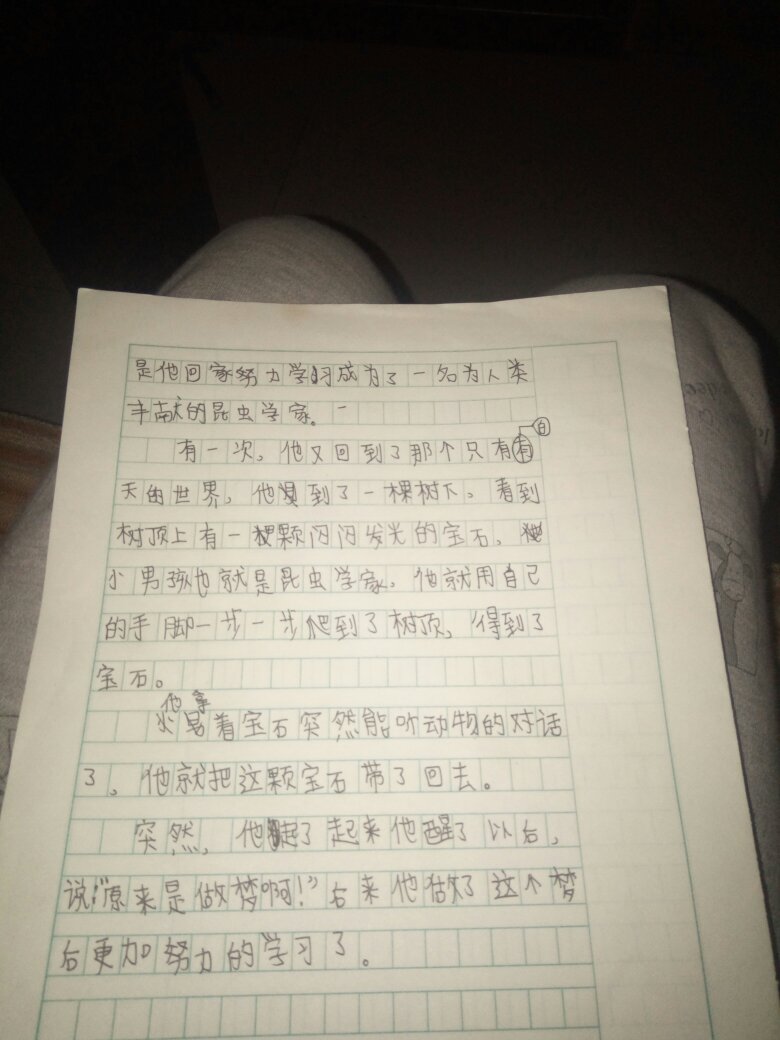 是他回家努力学习成为了一名为人类
丰献的昆虫学家。
有一次,他又回到了那个只有白
天的世界,他到了一棵树下。看到
树顶上有一颗闪闪发光的宝石。
小男孩也就是昆虫学家。他就用自己
的手脚一步一步爬到了树顶,得到了
宝石。
他拿着宝石突然能听动物的对话
了。他就把这颗宝石带了回去。
突然,他起来他醒了以后,
说:“原来是做梦啊!”后来他做了这个梦
后更加努力的学习了。